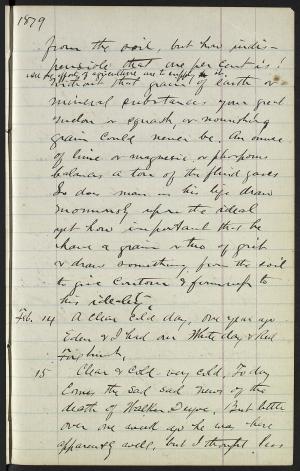 1879
from the soil, but how indis-
pensible that one per cent is!
all the efforts of agriculture are to supply
Without that grain of earth or
mineral substances your great
melon or squash, or nourishing
grain could never be. An ounce
of lime or magnesia, or phosporus
balances a ton of the fluid gases
So does man in his life draw
enormously upon the ideal
yet how important that he
have a grain or two of grit
or draw something, from the soil
to give contour & firmness to
his ideality.
Feb. 14 A clear cold day, one year ago
Eden & I had our White day & Red
Finch
15 Clear & Cold very cold. To day
Comes the sad sad news of the
death of Walker Deyoe. But little
over one week ago he was here
apparently well, but I thought less